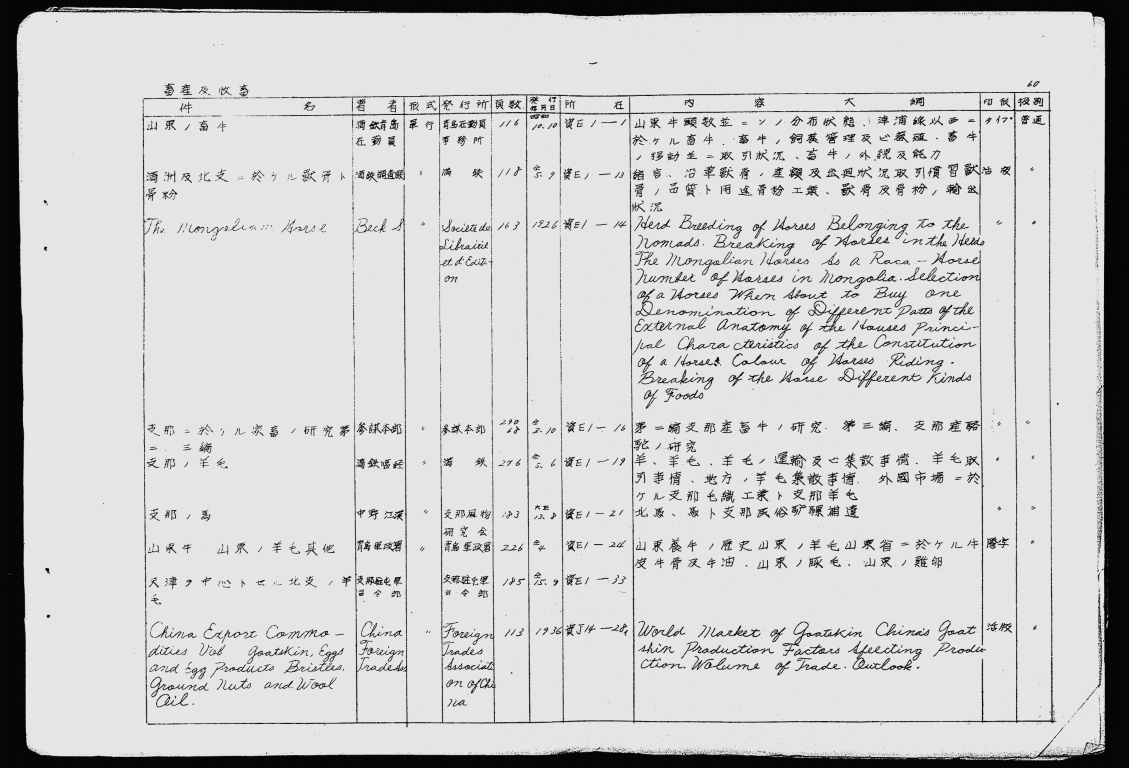 60
畜産及牧畜
件 名 著者 形式 発行所 頁数 発行年月日 所在 内容大綱 印刷 扱別
山東ノ畜牛 満鉄青島在勤員 単行 青島在勤員事務所 116 昭和10.10 資E1—1 山東牛頭数並ニソノ分布状態、津浦線以西ニ タイプ 普通
於ケル畜牛、畜牛ノ飼養管理及ビ蕃殖、畜牛
ノ移動並ニ取引状況、畜牛ノ外貌及能力
満洲及北支ニ於ケル獣骨ト 満鉄調査課 〃 満鉄 118 仝5.9 資E1—13 緒言、沿革獣骨ノ産額及出廻状況取引慣習獣 活版 〃
骨粉 骨ノ品質ト用途骨粉工業、獣骨及骨粉ノ輸出
状況
The Mongolian Horse Beck S 〃 Societe de 163 1926 資E1—14 Herd Breeding of Horses Belonging to the 〃 〃
Librairie Nomads. Breaking of Horses in the Herds
et d'Editi- The Mongolian Horses As A Raca – Horse
on Number of Horses in Mongolia. Selection
of a Horses When About to Buy one
Denomination of Different Patts of the
External Anatomy of the Houses Princi-
pal Characteristics of the Constitution
of a Horse. Colour of Horses Riding.
Breaking of the Horse Different Kinds
of Foods
支那ニ於ケル家畜ノ研究第 参謀本部 〃 参謀本部 290 68 仝2.10 資E1—16 第二編支那産畜牛ノ研究. 第三編、支那産駱 〃 〃
二、三編 駝ノ研究
支那ノ羊毛 満鉄臨経 〃 満鉄 276 仝5.6 資E1—19 羊、羊毛、羊毛ノ運輸及ビ集散事情、羊毛取 〃 〃
引事情、地方ノ羊毛集散事情 外國市場ニ於
ケル支那毛織工業ト支那羊毛
支那ノ馬 中野江漢 〃 支那風物研究会 183 大正13.8 資E1—21 北馬、馬ト支那民俗 〃 〃
山東牛 山東ノ羊毛其他 青島軍政署 〃 青島軍政署 226 仝4. 資E1—24 山東養牛ノ歴史山東ノ羊毛山東省ニ於ケル牛 謄字 〃
皮牛骨及牛油、山東ノ豚毛、山東ノ雞卵
天津ヲ中心トセル北支ノ羊 支那駐屯軍司令部 支那駐屯軍司令部 185 仝15.9 資E1—33
毛
China Export Commo– China 〃 Foreign 113 1936 資J14—28 World Market of Goatskin China's Goat 活版 〃
dities Vol goatskin, Eggs Foreign Trades skin Production Factors Affecting Produ
and Egg Products Bristles. Trade As Associat ction. Wolume of Trade. Outlook.
Ground Nuts and Wool on of Chi
Oil. na